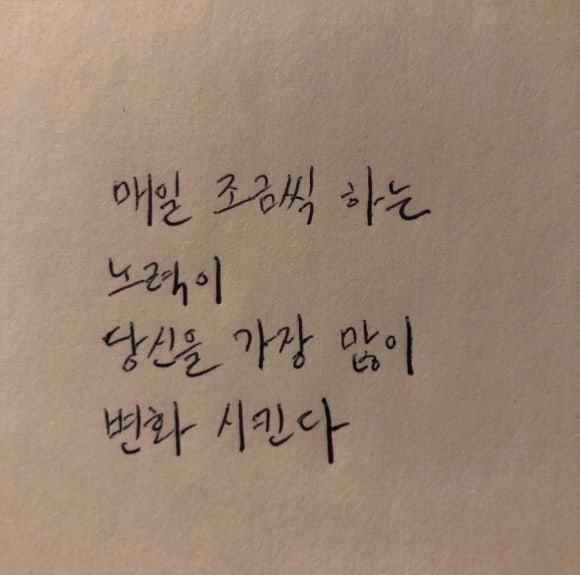 매일 조금씩 하는
노력이
당신을 가장 많이
변화 시킨다